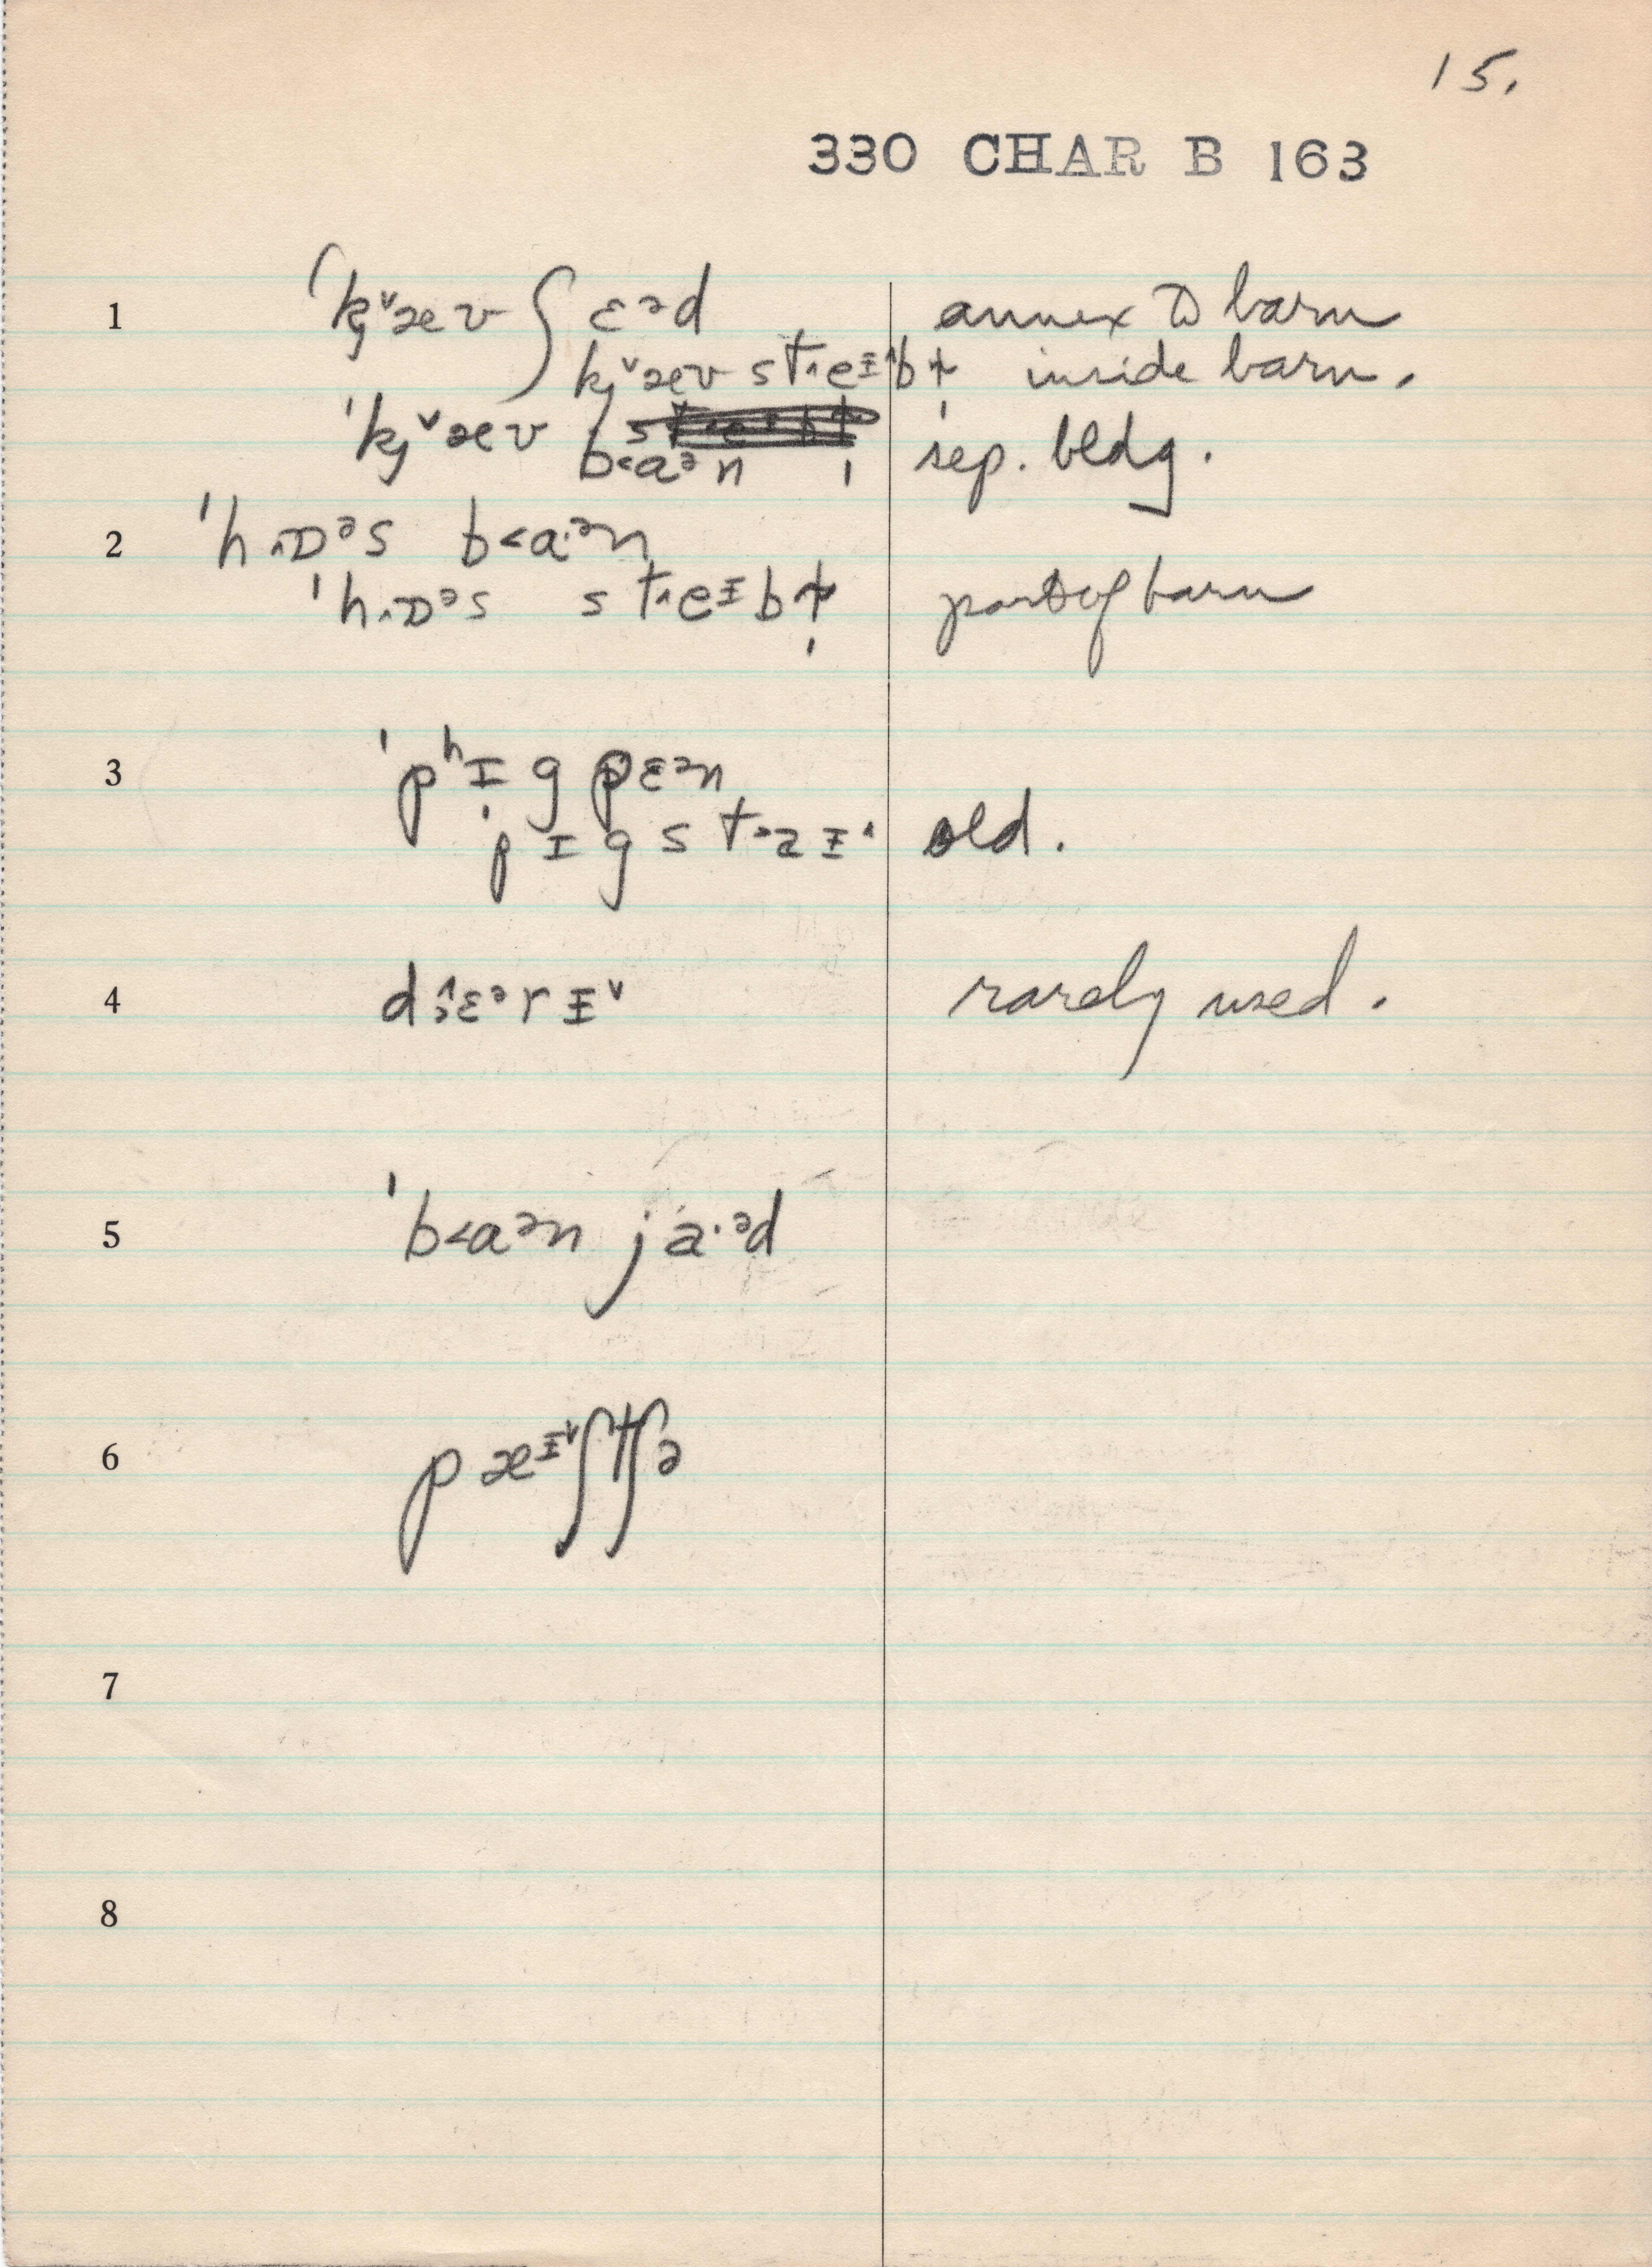 15.
330 CHAR B 163
1 ˈkj˅æv ʃɛᵊd annex to barn
kj˅æv st˄eɨ˄bɫ̩ inside barn.
ˈkj˅æv b<aᵊn sep. bldg.
2 ˈh˄ɒᵊs b<a·ᵊn
ˈh˄ɒᵊs st˄eɨbɫ̩ part of barn
3 ˈpʰɪg pɛᵊn
ˈpɪg st˃aɨ˄ old.
4 dɛᵊrɨ˅ rarely used.
5 ˈb<aᵊn ja·ᵊd
6 pæᶤ˅ʃtʃə
7
8